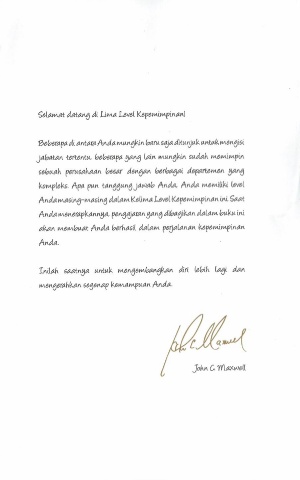 Selamat datang di Lima Level Kepemimpinan!
Beberapa di antara Anda mungkin baru saja ditunjuk untuk mengisi
jabatan tertentu, beberapa yang lain mungkin sudah memimpin
sebuah perusahaan besar dengan berbagai departemen yang
kompleks. Apa pun tanggung jawab Anda, Anda memiliki level
Anda masing-masing dalam Kelima Level Kepemimpinan ini. Saat
Anda menerapkannya, pengajaran yang dibagikan dalam buku ini
akan membuat Anda berhasil dalam perjalanan kepemimpinan
Anda.
Inilah saatnya untuk mengembangkan diri lebih lagi dan
mengerahkan segenap kemampuan Anda.
John C. Maxwell
John C. Maxwell